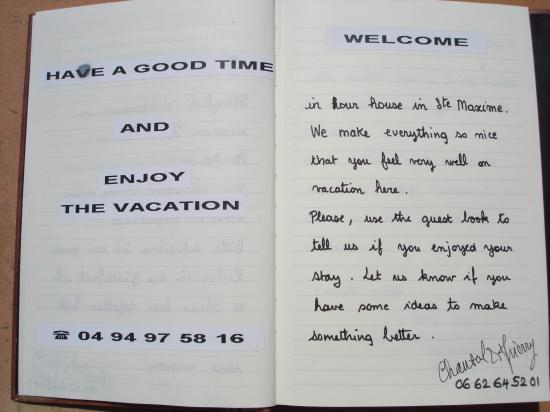 HAVE A GOOD TIME
AND
ENJOY
THE VACATION
☎ 04 94 97 58 16
WELCOME
in hour house in Ste Maxime.
We make everything so nice
that you feel very well on
vacation here.
Please, use the guest book to
tell us if you enjoyed your
stay. Let us know if you
have some ideas to make
something better.
Chantal & Thierry
06 62 64 52 01